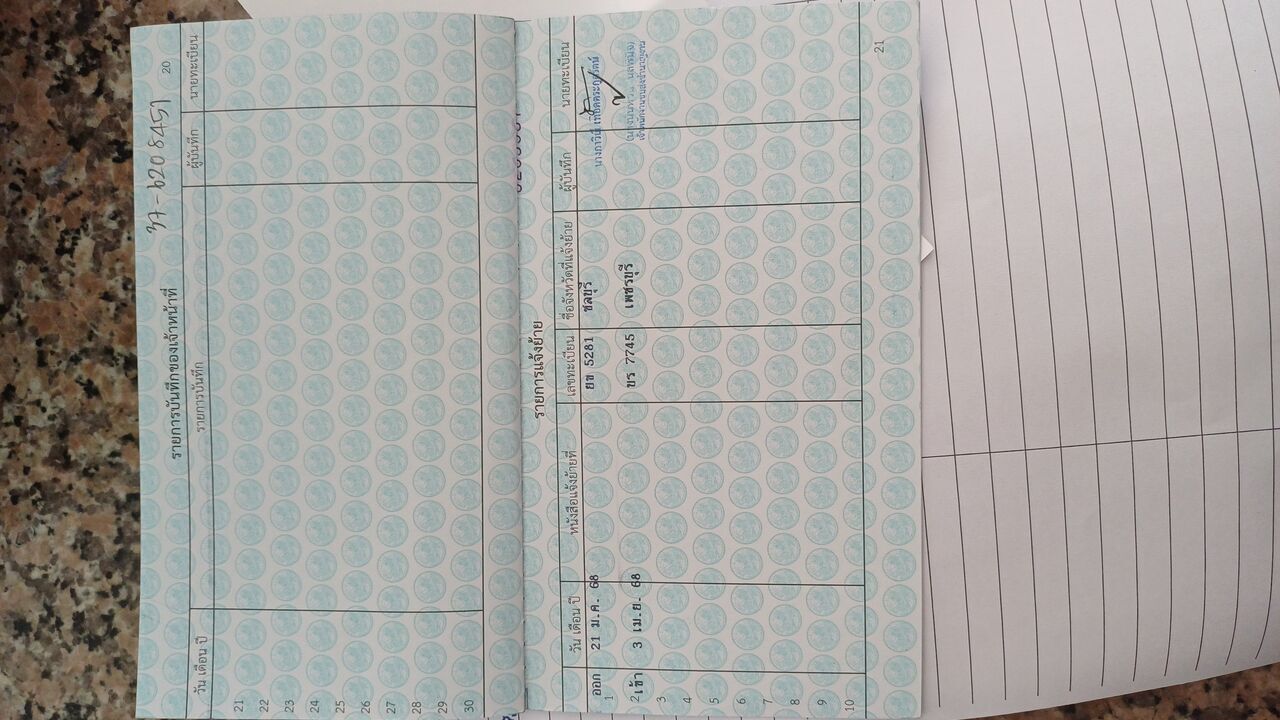 20
37-6208459
รายการบันทึกของเจ้าหน้าที่
วัน เดือน ปี รายการบันทึก ผู้บันทึก นายทะเบียน
21
22
23
24
25
26
27
28
29
30
รายการแจ้งย้าย
วัน เดือน ปี หนังสือแจ้งย้ายที่ เลขทะเบียน ชื่อจังหวัดที่แจ้งย้าย ผู้บันทึก นายทะเบียน
ออก 21 ม.ค. 68 ยข 5281 ชลบุรี
1
2 เข้า 3 เม.ย. 68 ขร 7745 เพชรบุรี
3
4
5
6
7
8
9
10
21